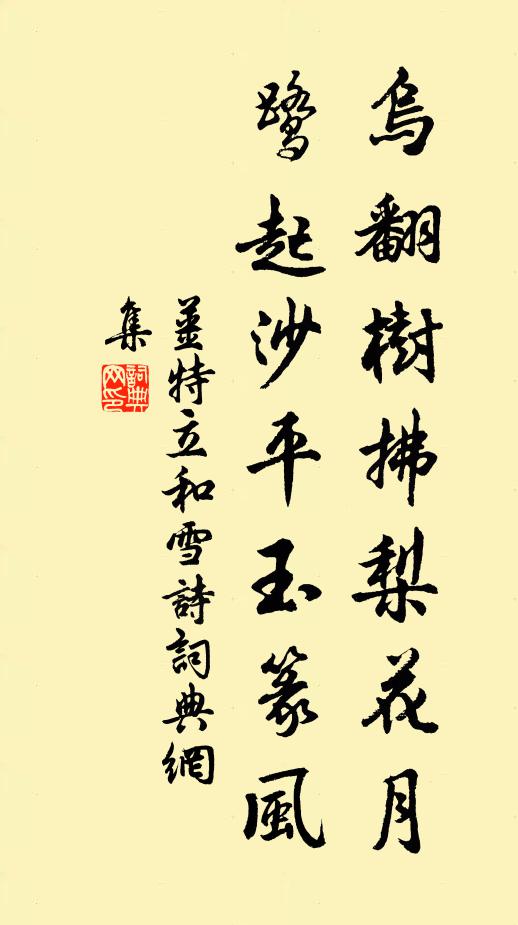 烏翻樹拂梨花月
鷺起沙平玉篆風
薑特立和雪詩詞典網
集
詞典
网印